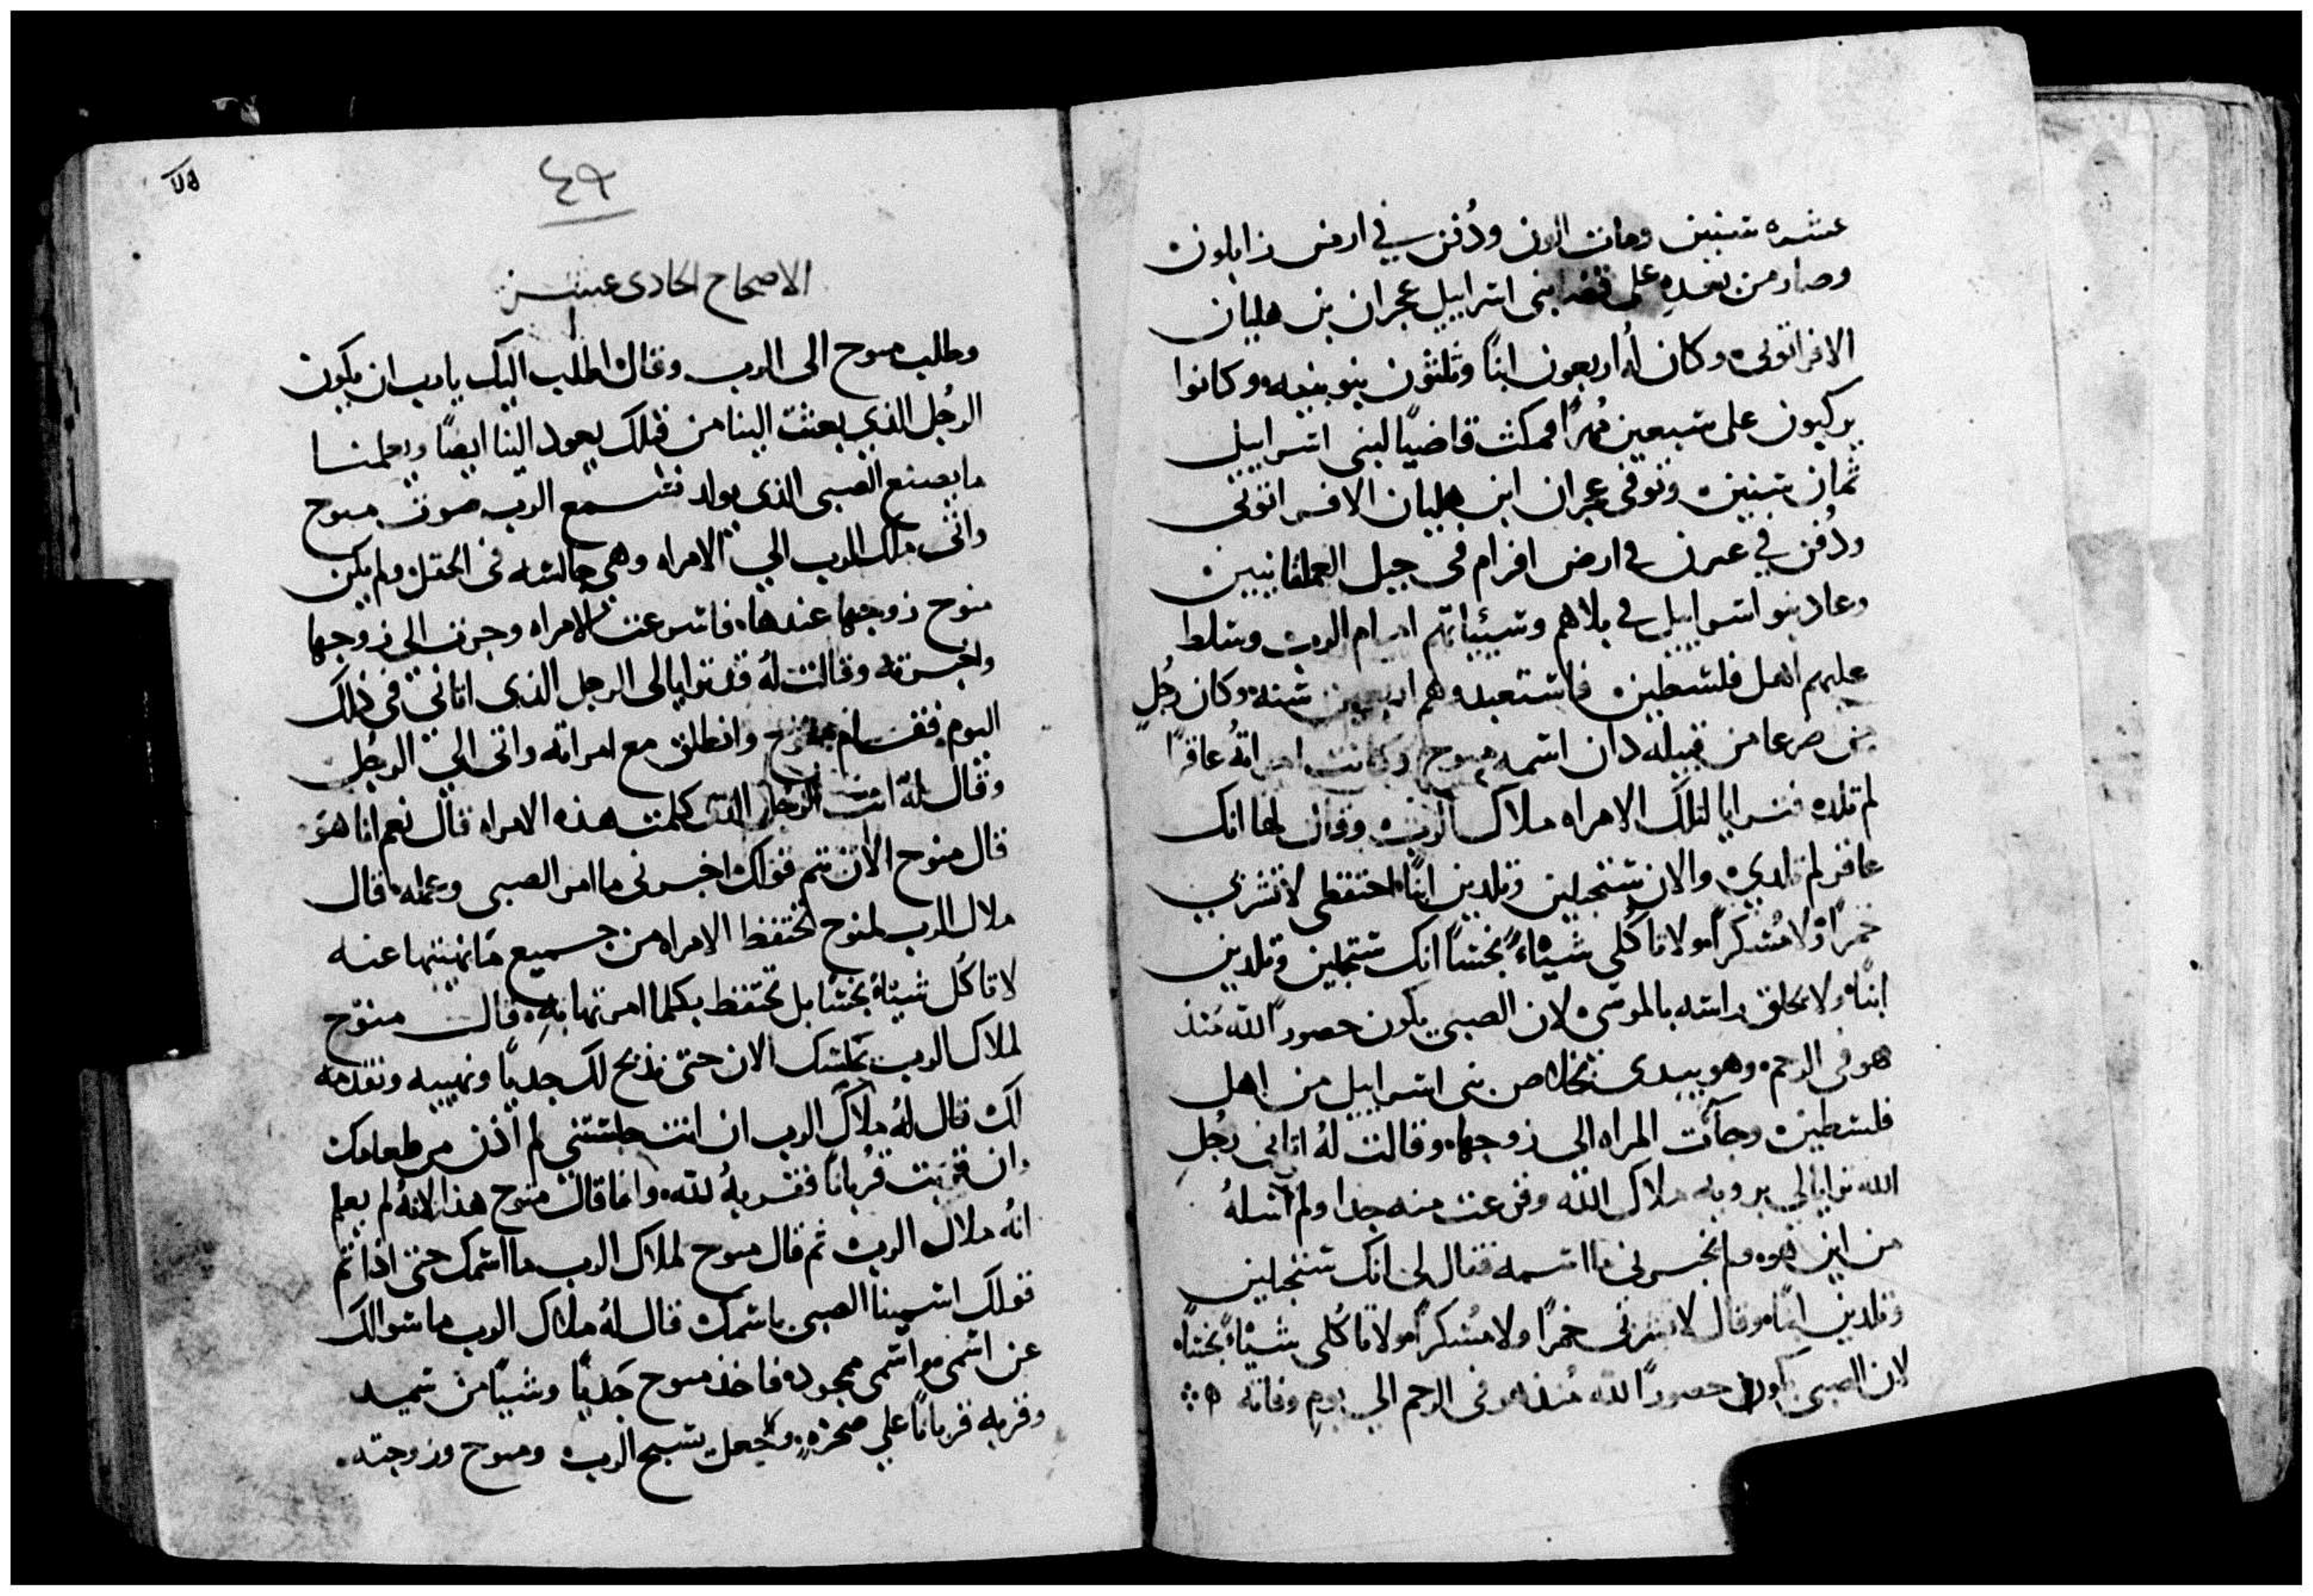 عشره سنين ومات الون ودُفن في ارض زابلون
وصار من بعده على قضا بنى اسراييل عجران بن هليان
الافراتونى وكان لهُ اربعون ابنًا وثلثون بنو بنيه وكانوا
يركبون على سبعين مُهرًا فمكث قاضيًا لبنى اسراييل
ثمان سنين وتوفى عجران ابن هليان الافراتونى
ودُفن في عمرن في ارض افرام فى جبل العملقانيين
وعاد بنو اسراييل في بلاهم وسيئياتهم امام الرب وسلط
عليهم اهل فلسطين فاستعبدوهم اربعين سنه وكان رجُل
من صرعا من قبيله دان اسمه منوح وكانت امراتهُ عاقرًا
لم تلد فترايا لتلك الامراه ملاك الرب وقال لها انك
عاقر لم تلدي والان ستحبلين وتلدين ابنًا احتفظى لا تشربي
خمرًا ولا مُسكرًا ولا تاكُلى شياءً نجسًا انك ستحبلين وتلدين
ابنًا ولا تحلق راسه بالموسى لان الصبى يكون حصورًا لله مُنذ
هو فى الرحم وهو يبدى بخلاص بنى اسراييل من اهل
فلسطين وجآت المراه الى زوجها وقالت لهُ اتانى رجُل
الله ترايا لي بروية ملاك الله وفزعت منه جدا ولم اسلهُ
من اين هو ولم يخبرنى ما اسمه فقال لى انك ستحبلين
وتلدين ابنًا وقال لا تشربى خمرًا ولا مُسكرًا ولا تاكُلى شياءً نجسًا
لان الصبى يكون حصورًا لله مُنذ هو فى الرحم الي يوم وفاته
٤٩
الاصحاح الحادى عشر
وطلب منوح الى الرب وقال اطلب اليك يا رب ان يكون
الرجُل الذي بعثت الينا من قبلك يعود الينا ايضًا ويعلمنا
ما يصنع الصبى الذى يولد فسمع الرب صوت منوح
واتى ملاك الرب الي الامراه وهى جالسه فى الحقل ولم يكن
منوح زوجها عندها فاسرعت الامراه وجرت الى زوجها
واخبرته وقالت لهُ قد ترايا لى الرجل الذى اتانى فى ذلك
اليوم فقام منوح وانطلق مع امراته واتى الى الرجُل
وقال لهُ انت الرجل الذى كلمت هذه الامراه قال نعم انا هو
قال منوح الان يتم قولك اخبرنى ما امر الصبى وعمله قال
ملاك الرب لمنوح تحتفظ الامراه من جميع ما نهيتها عنه
لا تاكُل شياءً نجسًا بل تحتفظ بكلما امرتها به قال منوح
لملاك الرب نجلسك الان حتى نذبح لك جديًا ونهيبه ونقدمه
لك قال لهُ ملاك الرب ان انت جلستنى لم اذن من طعامك
وان قربت قُربانًا فقربهُ لله وانما قال منوح هذا لانهُ لم يعلم
انهُ ملاك الرب ثم قال منوح لملاك الرب ما اسمك حتى اذا تم
قولك اسمينا الصبى باسمك قال لهُ ملاك الرب ما سوالك
عن اسمى واسمى ممجود فاخذ منوح جَديًا وشيًا من سميد
وقربه قربانًا علي صخره وجعل يسبح الرب ومنوح وزوجته